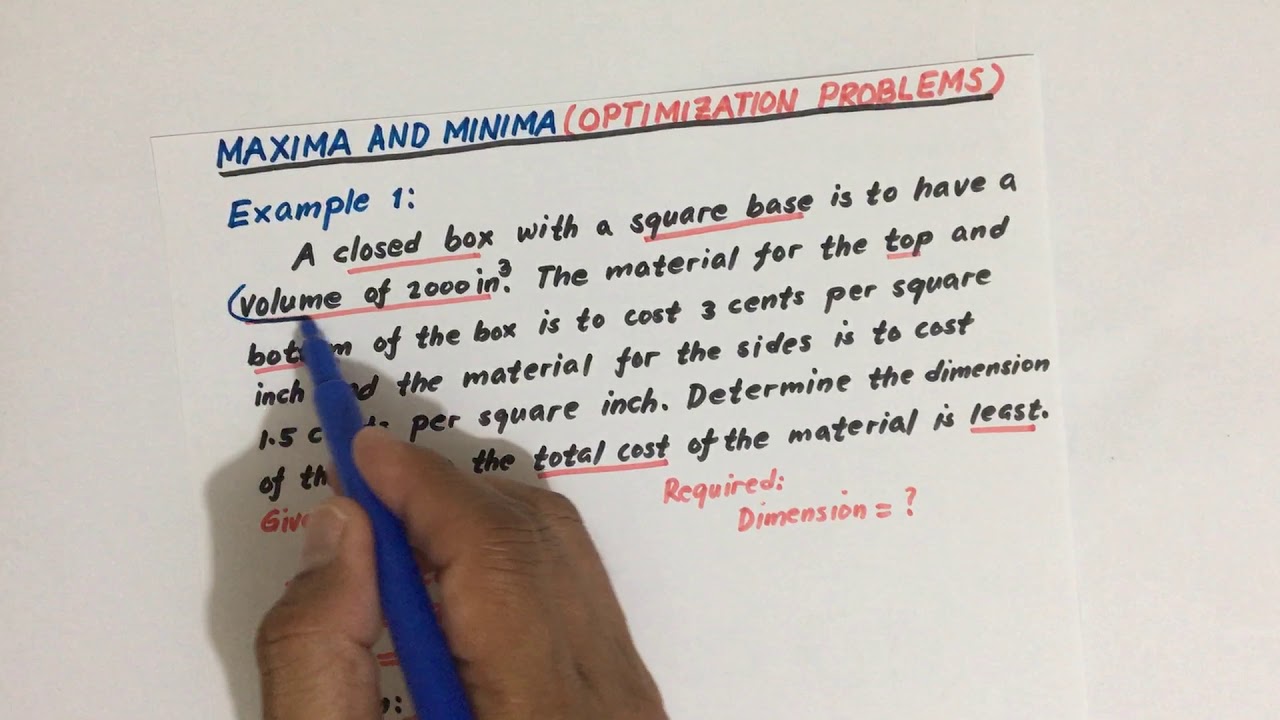 MAXIMA AND MINIMA (OPTIMIZATION PROBLEMS)
Example 1:
A closed box with a square base is to have a
(volume of 2000 in³. The material for the top and
of the box is to cost 3 cents per square
inch the material for the sides is to cost
1.5 per square inch. Determine the dimension
of the total cost of the material is least.
Required:
Dimension = ?